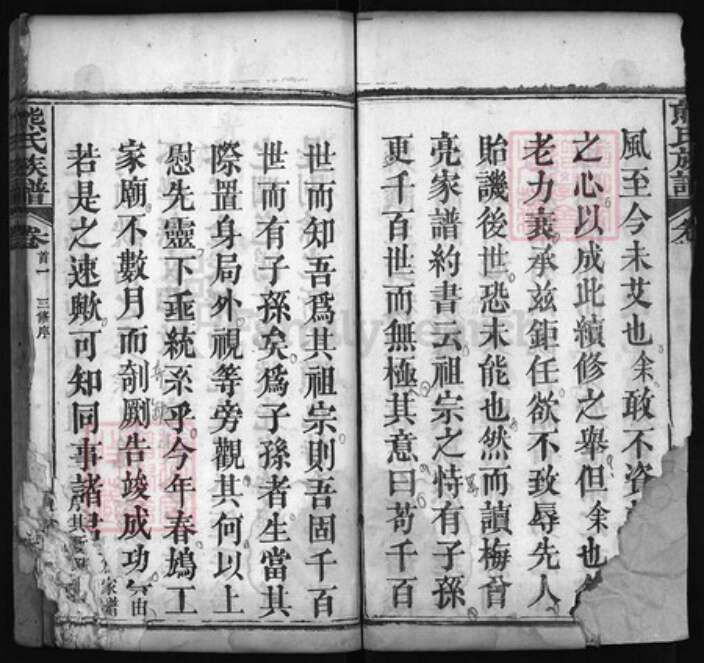 風至今未艾也余敢不咨
之心以成此續修之舉但余也
老力衰承兹鉅任欲不致辱先人
貽譏後世恐未能也然而讀梅曾
亮家譜約書云祖宗之恃有子孫
更千百世而無極其意曰苟千百
世而知吾爲其祖宗則吾固千百
世而有子孫矣爲子孫者生當其
際置身局外視等旁觀其何以上
慰先靈下垂統系乎今年春鳩工
家廟不數月而剞劂告竣成功
若是之速歟可知同事諸君
熊氏族譜
卷首一
三修序
家譜
熊氏族譜
卷
FamilySearch